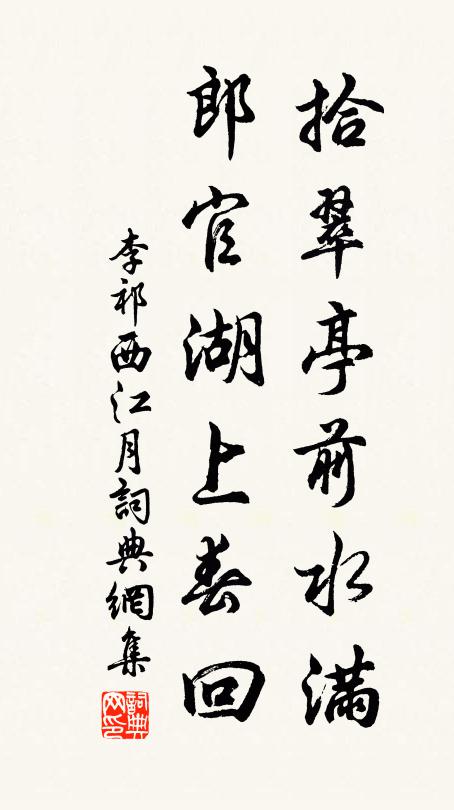 拾翠亭前水滿
郎官湖上春回
李祁西江月詞典網集
詞典网印